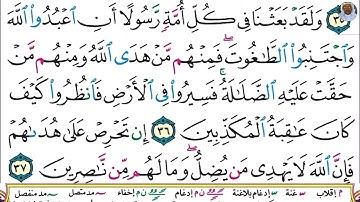 ٣٥ وَلَقَدْ بَعَثْنَا فِى كُلِّ أُمَّةٍ رَّسُولًا أَنِ ٱعْبُدُوا۟ ٱللَّهَ
وَٱجْتَنِبُوا۟ ٱلطَّٰغُوتَ ۖ فَمِنْهُم مَّنْ هَدَى ٱللَّهُ وَمِنْهُم مَّنْ
حَقَّتْ عَلَيْهِ ٱلضَّلَٰلَةُ ۚ فَسِيرُوا۟ فِى ٱلْأَرْضِ فَٱنظُرُوا۟ كَيْفَ
كَانَ عَٰقِبَةُ ٱلْمُكَذِّبِينَ ٣٦ إِن تَحْرِصْ عَلَىٰ هُدَىٰهُمْ
فَإِنَّ ٱللَّهَ لَا يَهْدِى مَن يُضِلُّ ۖ وَمَا لَهُم مِّن نَّٰصِرِينَ ٣٧
م إقلاب غنة إدغام بلاغنة ن م إدغام ن م إخفاء مد متصل مد منفصل